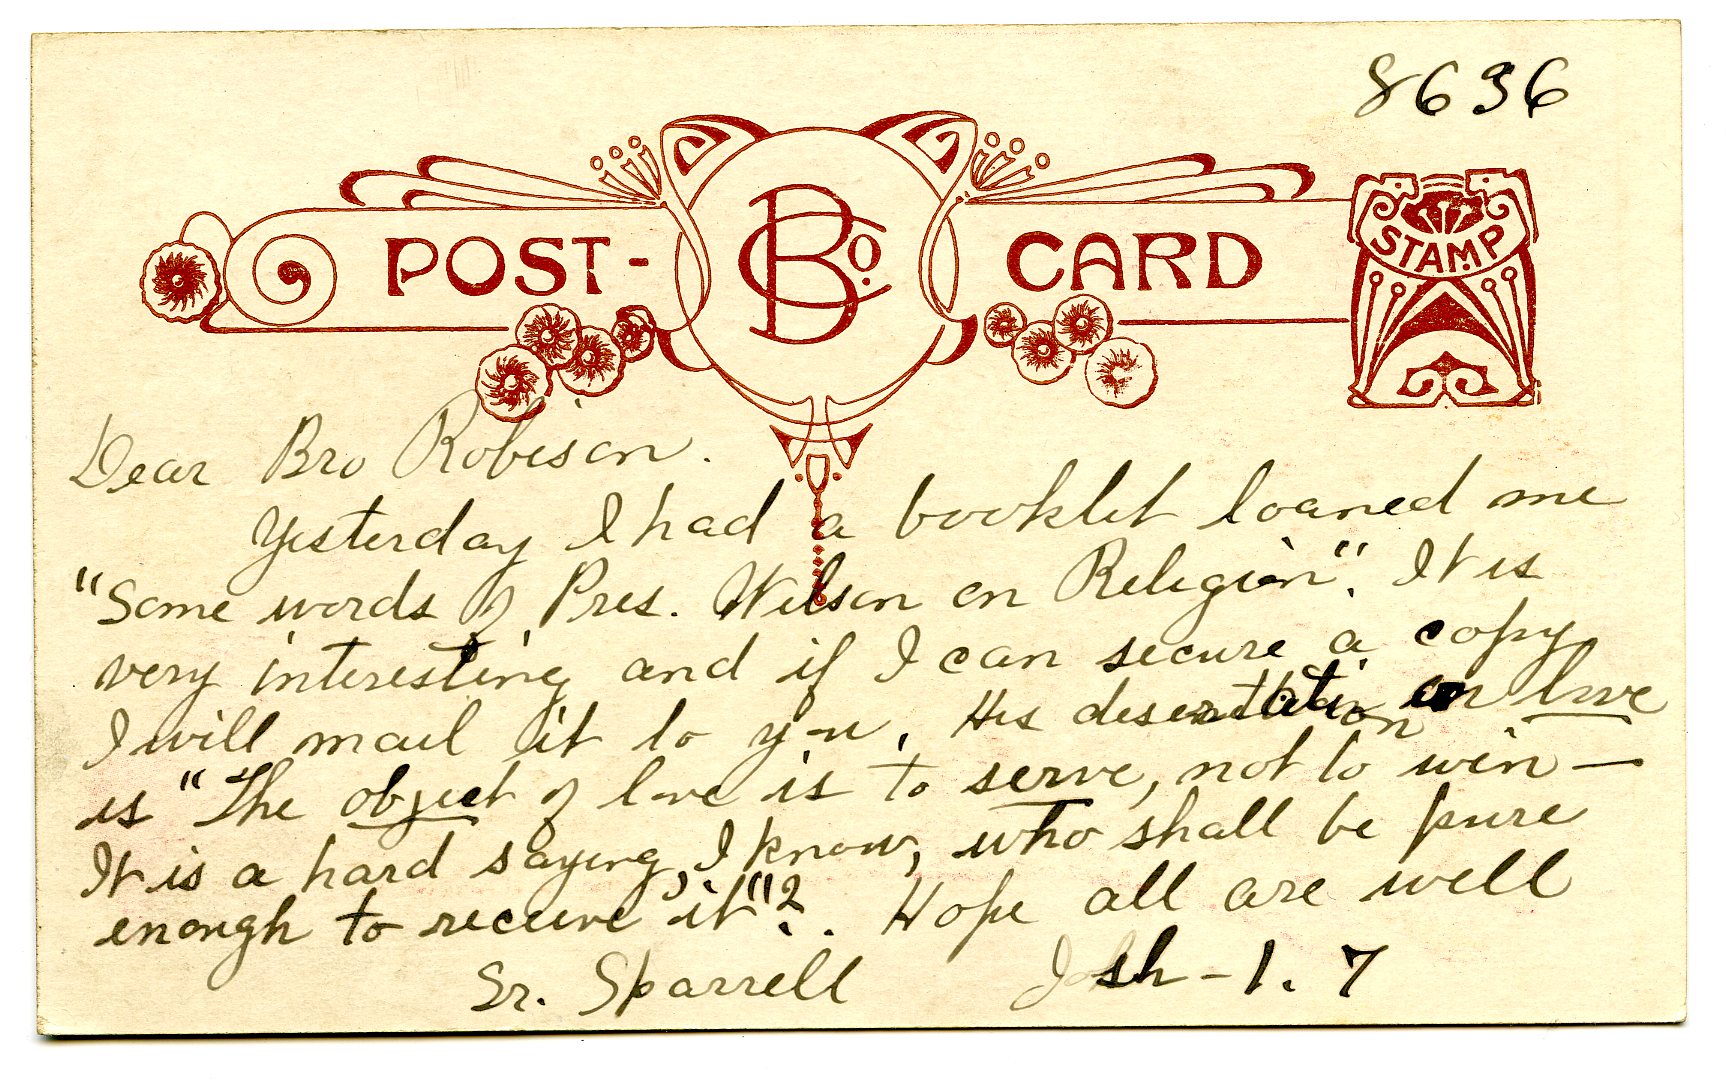 8636
POST- BCo. CARD
STAMP
Dear Bro Robison.
Yesterday I had a booklet loaned me
"Some words of Pres. Wilson on Religion". It is
very interesting and if I can secure a copy
I will mail it to you. His desertation on love
is "The object of love is to serve, not to win —
It is a hard saying, I know, who shall be pure
enough to receive it"?. Hope all are well
Sr. Sparrell Josh - 1. 7